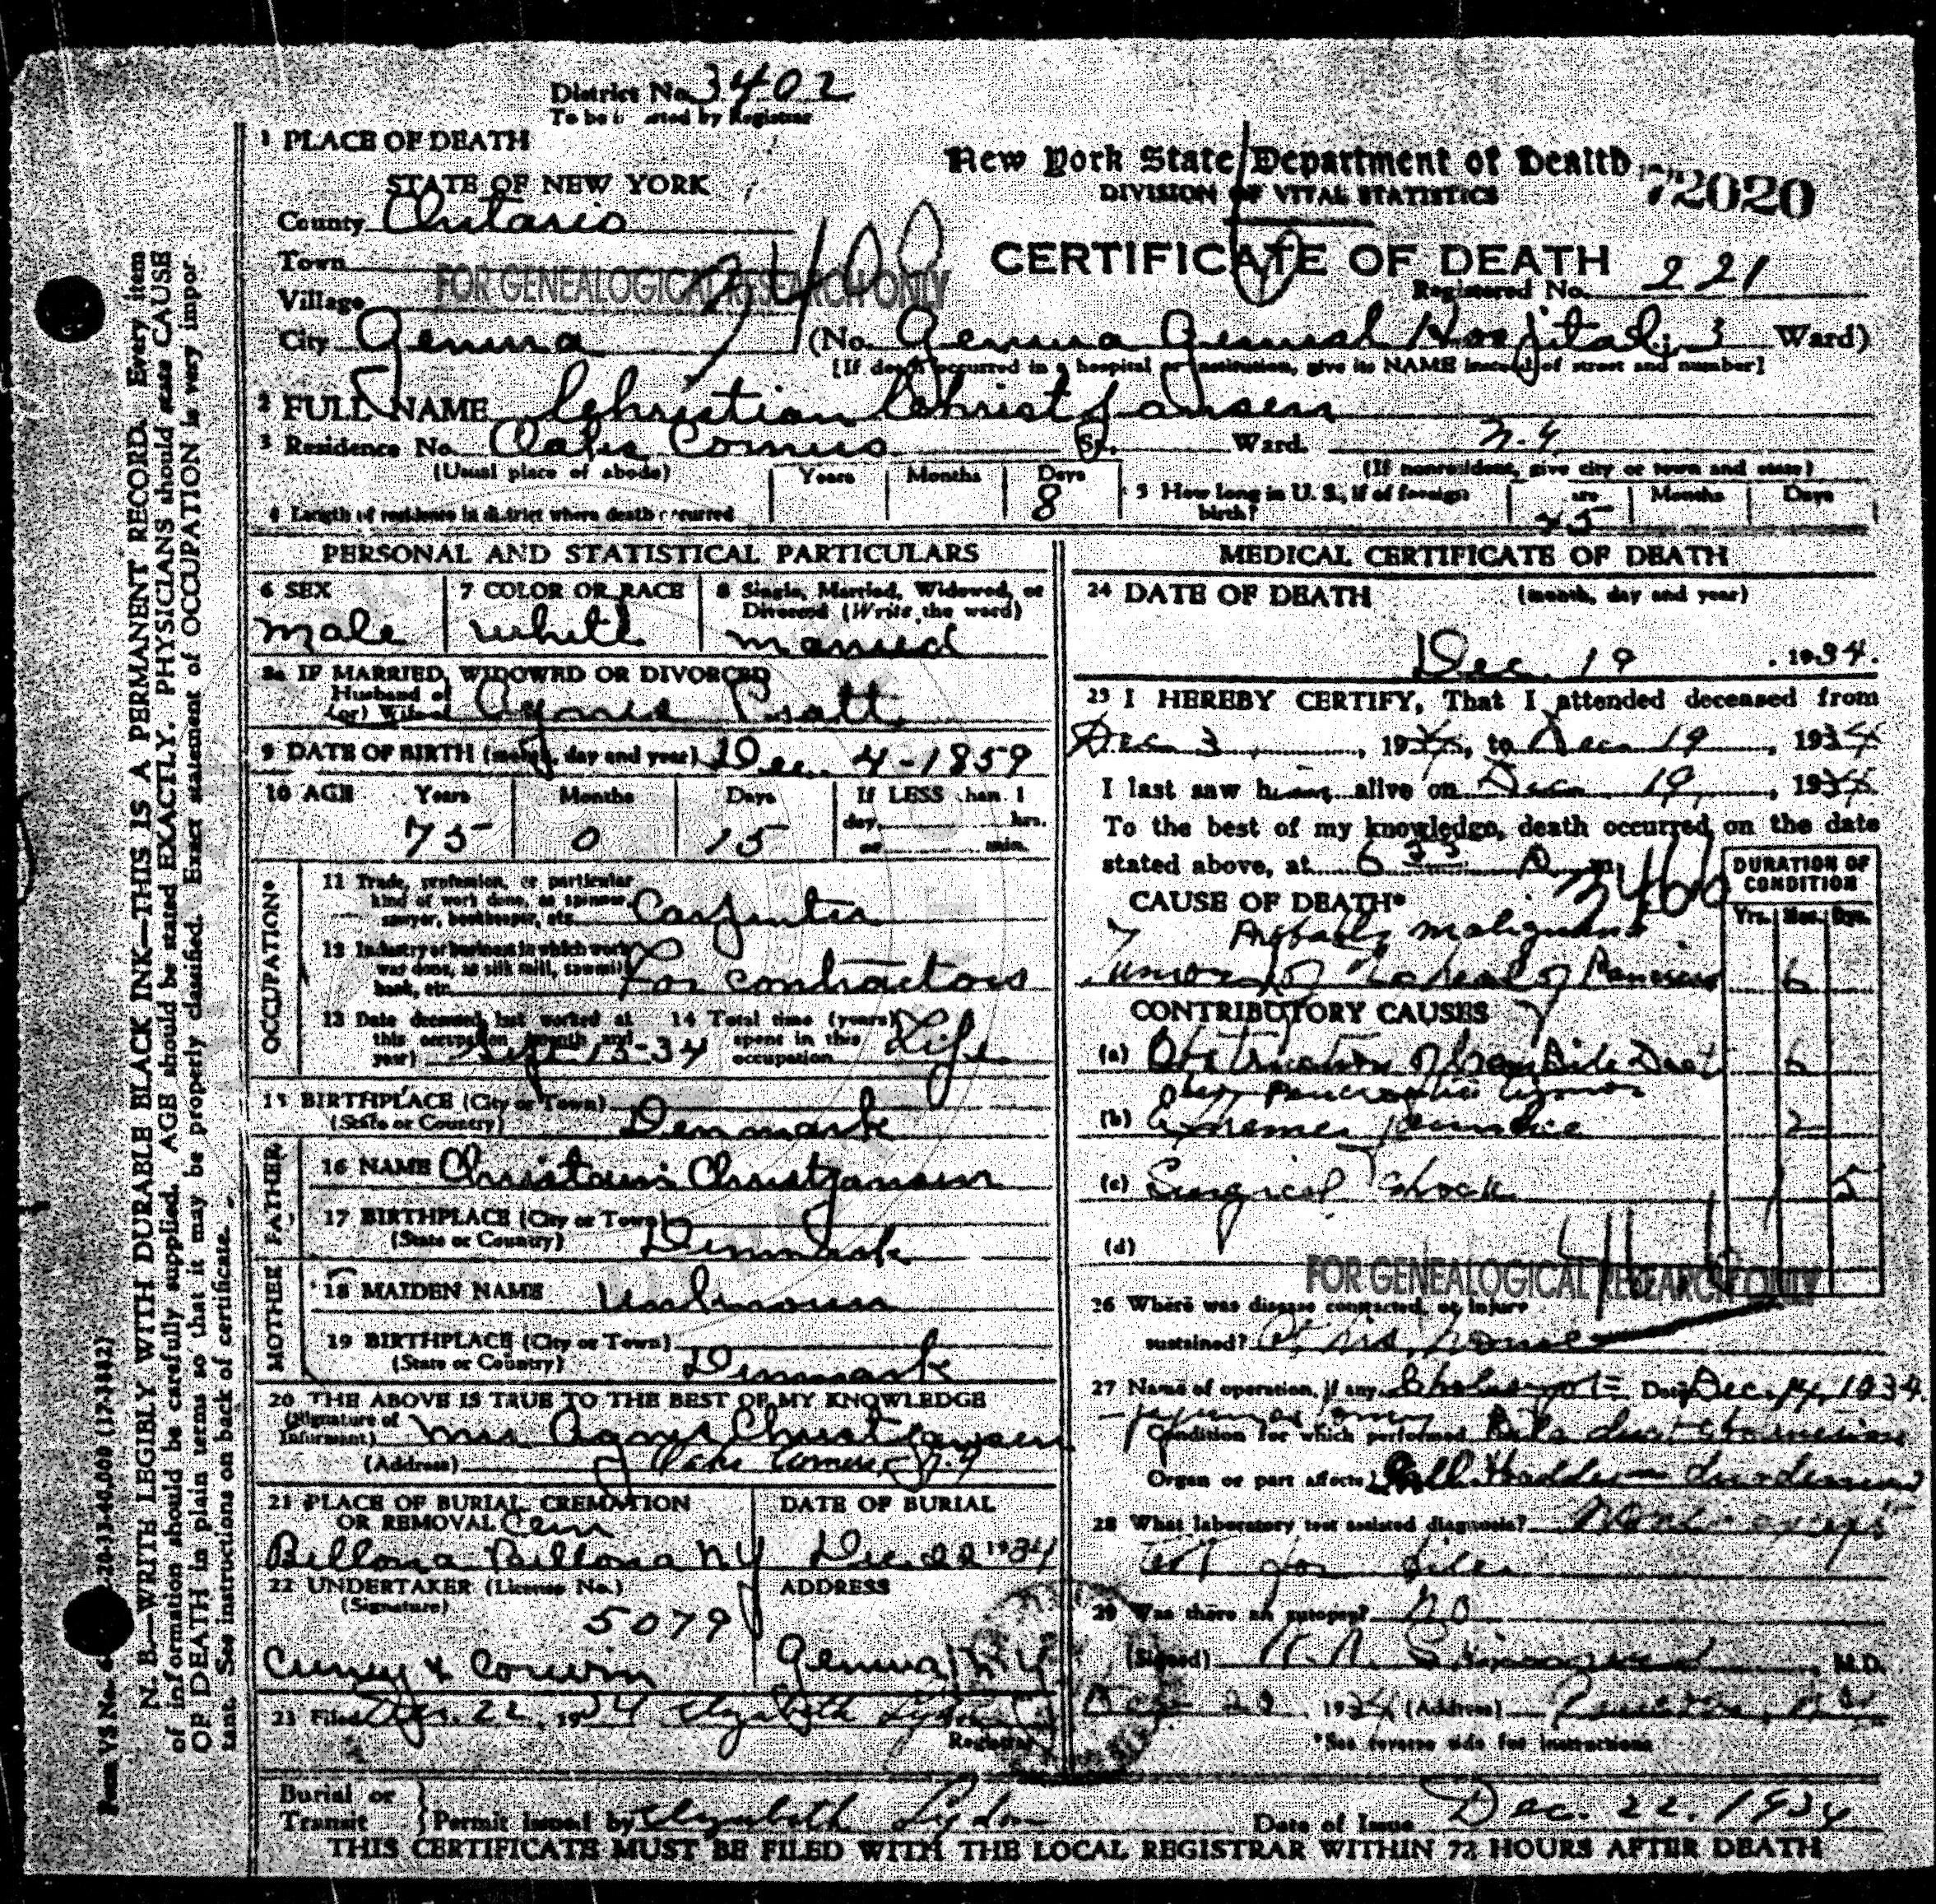 District No. 3402
To be inserted by Registrar
1 PLACE OF DEATH
STATE OF NEW YORK
New York State Department of Health
DIVISION OF VITAL STATISTICS
72020
County Ontario
Town
CERTIFICATE OF DEATH
FOR GENEALOGICAL RESEARCH ONLY
Village
Registered No. 221
City Geneva (No. Geneva General Hospital; 3 Ward)
[If death occurred in a hospital or institution, give its NAME instead of street and number]
2 FULL NAME Christian Christjansen
3 Residence No. Oaks Corners St. Ward. N.Y
(Usual place of abode) (If nonresident, give city or town and state)
Years Months Days
4 Length of residence in district where death occurred 8
5 How long in U. S., if of foreign birth? Months Days
PERSONAL AND STATISTICAL PARTICULARS
6 SEX 7 COLOR OR RACE 8 Single, Married, Widowed, or Divorced (Write the word)
male white married
8a IF MARRIED, WIDOWED OR DIVORCED
Husband of
(or) Wife of Agnes Pratt
9 DATE OF BIRTH (month, day and year) Dec. 4-1859
10 AGE Years Months Days If LESS than 1
75 0 15 day, hrs.
or min.
OCCUPATION*
11 Trade, profession, or particular
kind of work done, as spinner,
sawyer, bookkeeper, etc. Carpenter
12 Industry or business in which work
was done, as silk mill, sawmill,
bank, etc. For contractors
13 Date deceased last worked at
this occupation (month and
year) Sept 15-34
14 Total time (years)
spent in this
occupation Life
15 BIRTHPLACE (City or Town)
(State or Country) Denmark
FATHER
16 NAME Christain Christjansen
17 BIRTHPLACE (City or Town)
(State or Country) Denmark
MOTHER
18 MAIDEN NAME Unknown
19 BIRTHPLACE (City or Town)
(State or Country) Denmark
20 THE ABOVE IS TRUE TO THE BEST OF MY KNOWLEDGE
(Signature of
Informant) Mrs Agnes Christjansen
(Address) Oaks Corners N.Y
21 PLACE OF BURIAL, CREMATION
OR REMOVAL Cem
DATE OF BURIAL
Bellona Bellona N.Y Dec 22 1934
22 UNDERTAKER (License No.)
(Signature)
ADDRESS
5079
Cuney & Corwin Geneva N.Y
23 Filed Dec. 22, 1934 Elizabeth Lydon
Registrar
MEDICAL CERTIFICATE OF DEATH
24 DATE OF DEATH (month, day and year)
Dec. 19, 1934.
25 I HEREBY CERTIFY, That I attended deceased from
Dec 3, 1934, to Dec 19, 1934
I last saw him alive on Dec 19, 1934
To the best of my knowledge, death occurred on the date
stated above, at 6 35 A. m.
DURATION OF
CONDITION
Yrs. Mos. Dys.
CAUSE OF DEATH*
Probably malignant
Tumor of head of Pancreas 6
CONTRIBUTORY CAUSES
(a) Obstruction of Bile Duct 6
Pancreatic
(b) Extreme Jaundice 2
(c) Surgical Shock 5
(d)
FOR GENEALOGICAL RESEARCH ONLY
26 Where was disease contracted, or injury
sustained? At his home
27 Name of operation, if any Date Dec. 14, 1934.
Condition for which performed Bile duct
Organ or part affected Gall bladder
28 What laboratory test assisted diagnosis?
test for bile
29 Was there an autopsy? no
(Signed) M.D.
Dec 20, 1934 (Address)
*See reverse side for instructions
Burial or
Transit } Permit issued by Elizabeth Lydon Date of Issue Dec. 22. 1934
THIS CERTIFICATE MUST BE FILED WITH THE LOCAL REGISTRAR WITHIN 72 HOURS AFTER DEATH
N. B.—WRITE LEGIBLY WITH DURABLE BLACK INK—THIS IS A PERMANENT RECORD. Every item
of information should be carefully supplied. AGE should be stated EXACTLY. PHYSICIANS should state CAUSE
OF DEATH in plain terms so that it may be properly classified. Exact statement of OCCUPATION is very impor
tant. See instructions on back of certificate.